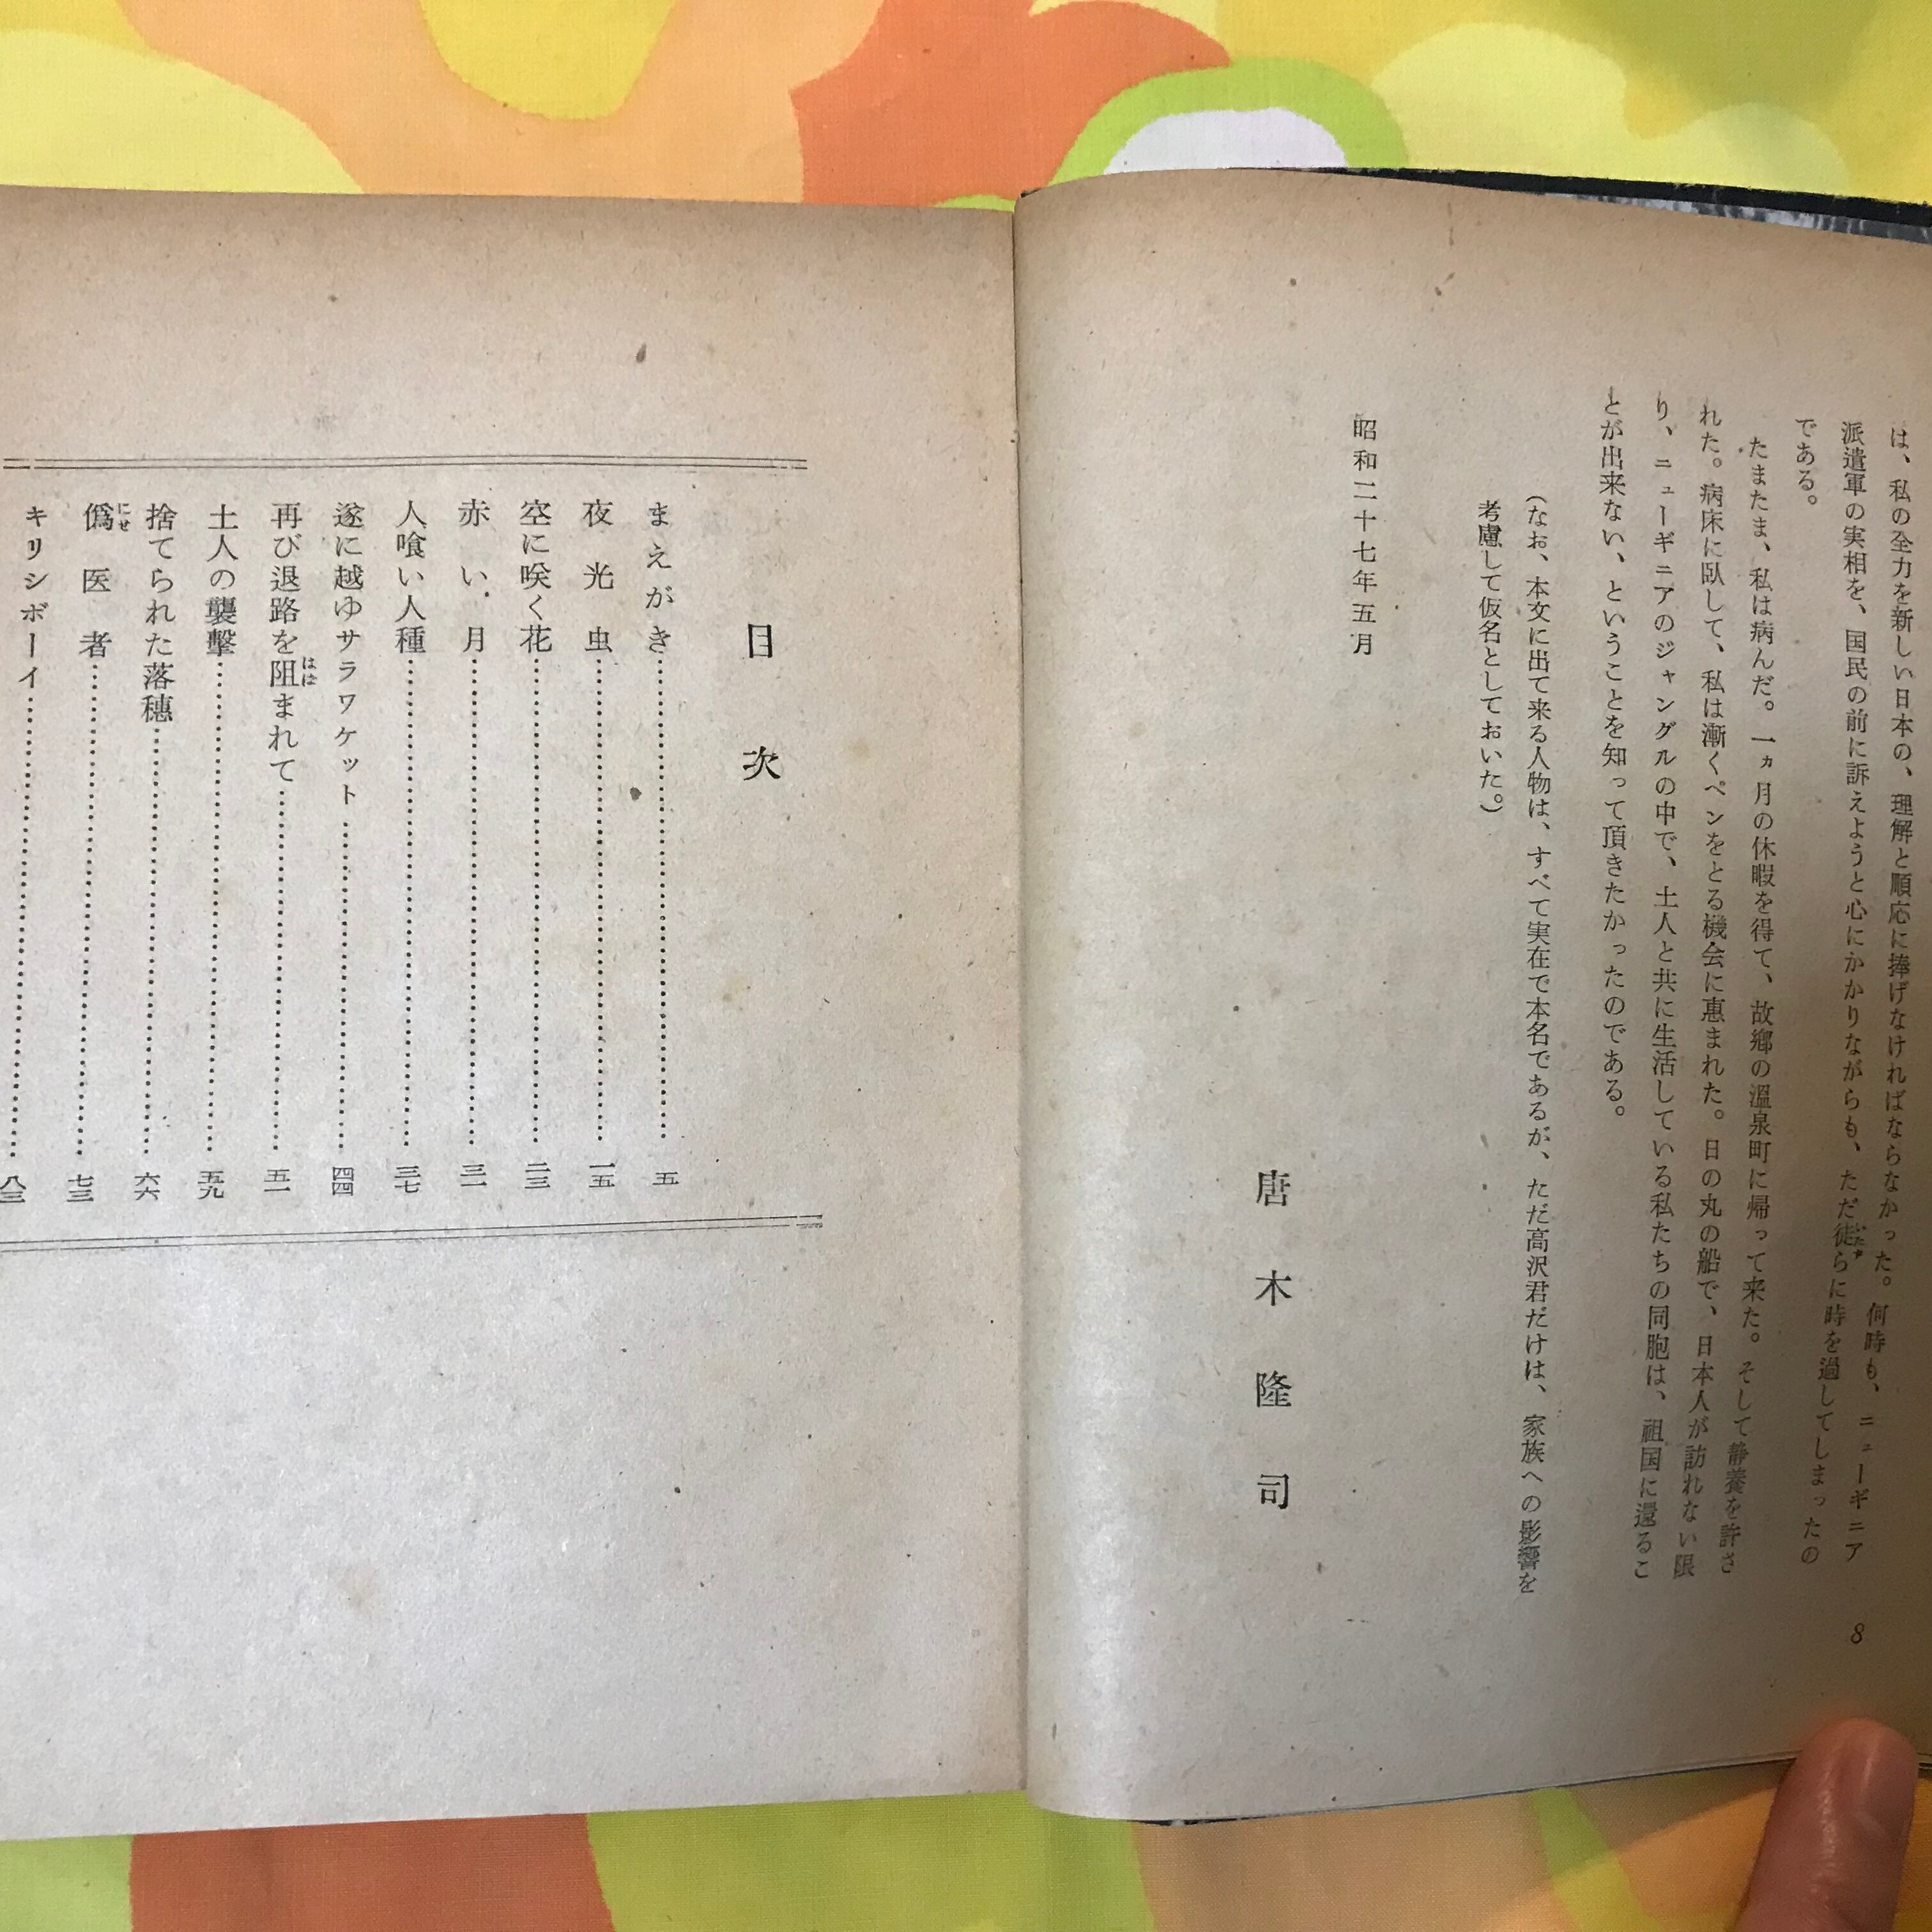 は、私の全力を新しい日本の、理解と順応に捧げなければならなかった。何時も、ニューギニア
派遣軍の実相を、国民の前に訴えようと心にかかりながらも、ただ徒らに時を過してしまったの
である。
たまたま、私は病んだ。一ヵ月の休暇を得て、故郷の溫泉町に帰って来た。そして静養を許さ
れた。病床に臥して、私は漸くペンをとる機会に恵まれた。日の丸の船で、日本人が訪れない限
り、ニューギニアのジャングルの中で、土人と共に生活している私たちの同胞は、祖国に還るこ
とが出来ない、ということを知って頂きたかったのである。
(なお、本文に出て来る人物は、すべて実在で本名であるが、ただ高沢君だけは、家族への影響を
考慮して仮名としておいた。)
昭和二十七年五月
唐木隆司
8
目次
まえがき……五
夜光虫……一五
空に咲く花……二三
赤い月……三一
人喰い人種……三七
遂に越ゆサラワケット……四四
再び退路を阻まれて……五一
はば
土人の襲擊……五九
捨てられた落穗……六六
僞医者……七三
にせ
キリシボーイ……八三